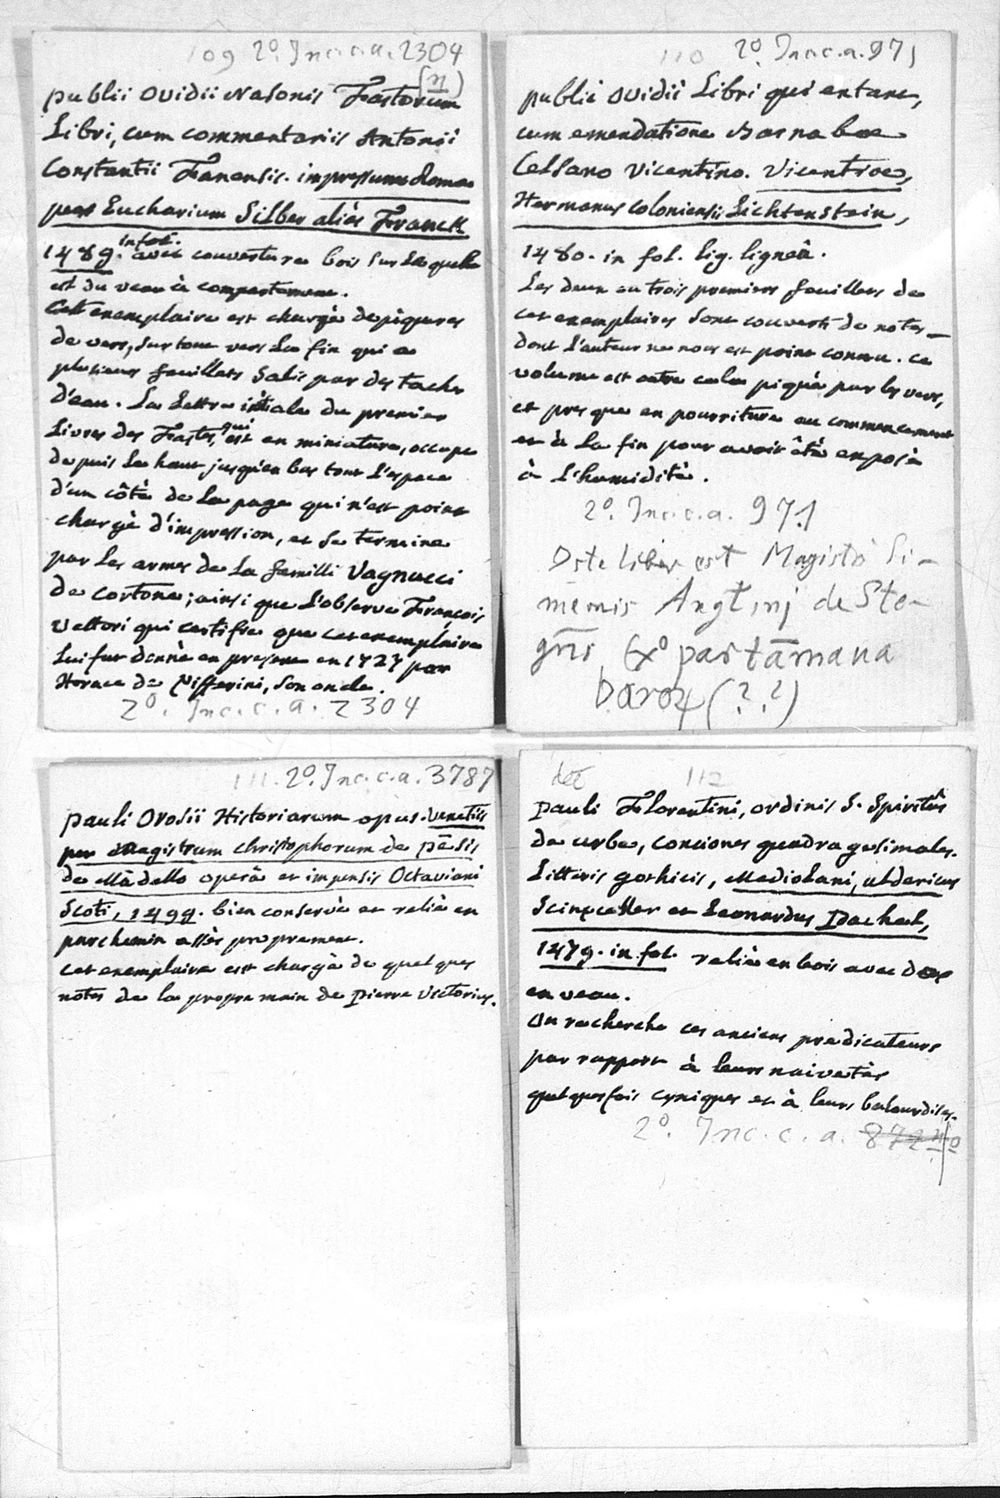 109 2º Inc. c. a. 2304
(n)
Publii Ovidii Nasonis Fastorum
Libri, cum commentariis Antonii
Constantii Fanensis. impressum Romae
per Eucharium Silber aliàs Franck
1489. in fol. avec couverture bois sur laquelle
est du veau à compartimens.
Cet exemplaire est chargé de piqures
de vers, surtout vers la fin qui a
plusieurs feuillets salis par des tache
d'eau. La Lettre initiale du premier
Livres des Fastes, qui est en miniature, occupe
depuis le haut jusqu'en bas tout l'espace
d'un côté de la page qui n'est point
chargé d'impression, et se termine
par les armes de la famille Vagnucci
de Cortone; ainsi que l'observe François
Vettori qui certifie que cet exemplaire
lui fut donné en present en 1727 par
Horace de Pifferini, son oncle.
2º. Inc. c. a. 2304
110 2º. Inc. c. a. 971
Publii Ovidii Libri qui extant,
cum emendatione Barnabae
Celsano Vicentino. Vicentiae,
Hermanus Coloniensis Lichtenstein,
1480. in fol. lig. ligneâ.
Les deux ou trois premiers feuillets de
cet exemplaires sont couverts de notes
dont l'auteur ne nous est point connu. ce
volume est outre cela piqué par les vers,
et presque en pourriture au commencement
et à la fin pour avoir été exposé
à l'humidité.
2º. Inc. c. a. 971
Iste liber est Magistri Si-
meonis Angt inj de Sto-
gnis, Ex° par tāmana
Daroz (?.?)
111. 2º. Inc. c. a. 3787
Pauli Orosii Historiarum opus. Venetiis
per Magistrum Christophorum de Pēsis
de Mādello operâ et impensis Octaviani
Scoti, 1499. bien conservé et relié en
parchemin assés proprement.
Cet exemplaire est chargé de quelques
notes de la propre main de Pierre Victorius.
det 112
Pauli Florentini, ordinis S. Spiritûs
de urbe, conciones quadragesimales.
Litteris gothicis, Mediolani, Uldericus
Scinzceller et Leonardus Pachel,
1479. in fol. relié en bois avec dos
en veau.
On recherche ces anciens predicateurs
par rapport à leurs naivetés
quelquesfois cyniques et à leurs balourdises.
2º. Inc. c. a. 872 n